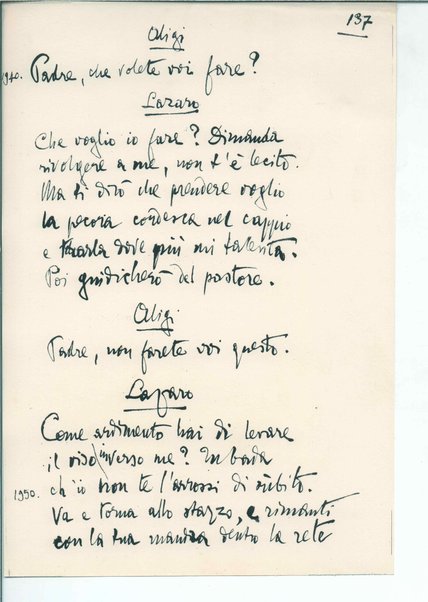 137
Aligi
1940. Padre, che volete voi fare?
Lazaro
Che voglio io fare? Dimanda
rivolgere a me, non t'è lecito.
Ma ti dirò che prendere voglio
la pecora cordesca nel cappio
e trarla dove più mi talenta.
Poi giudicherò del pastore.
Aligi
Padre, non farete voi questo.
Lazaro
Come ardimento hai di levare
il viso inverso me? In bada
1950. ch'io non te l'arrossi di sùbito.
Va e torna allo stazzo, e rimanti
con la tua mandra dentro la rete